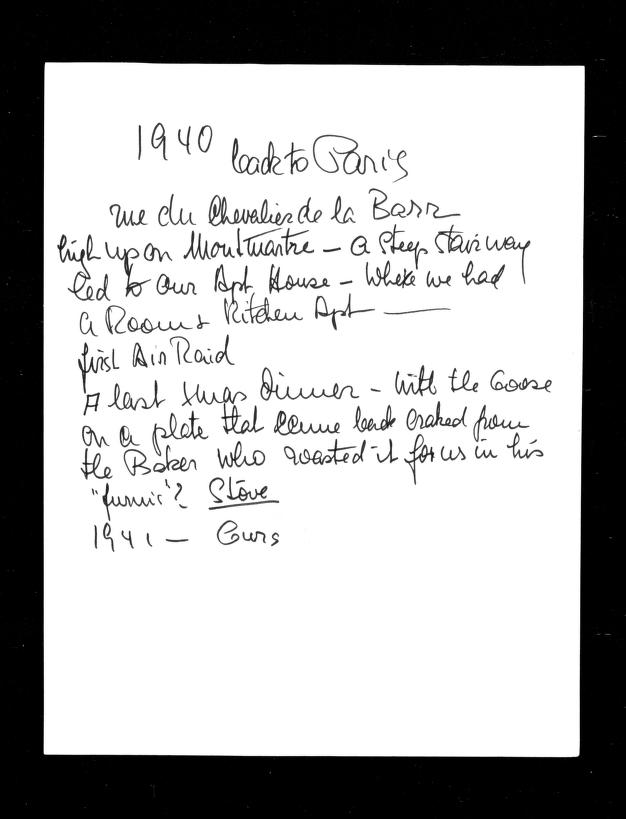 1940 back to Paris
rue du Chevalier de la Barr
high up on Montmartre – a steep stairway
led to our Apt House – Where we had
a Room & Kitchen Apt —
first Air Raid
A last Xmas Dinner – with the Goose
on a plate that came back craked from
the Baker who roasted it for us in his
"furnis"? Stove
1941 – Gurs